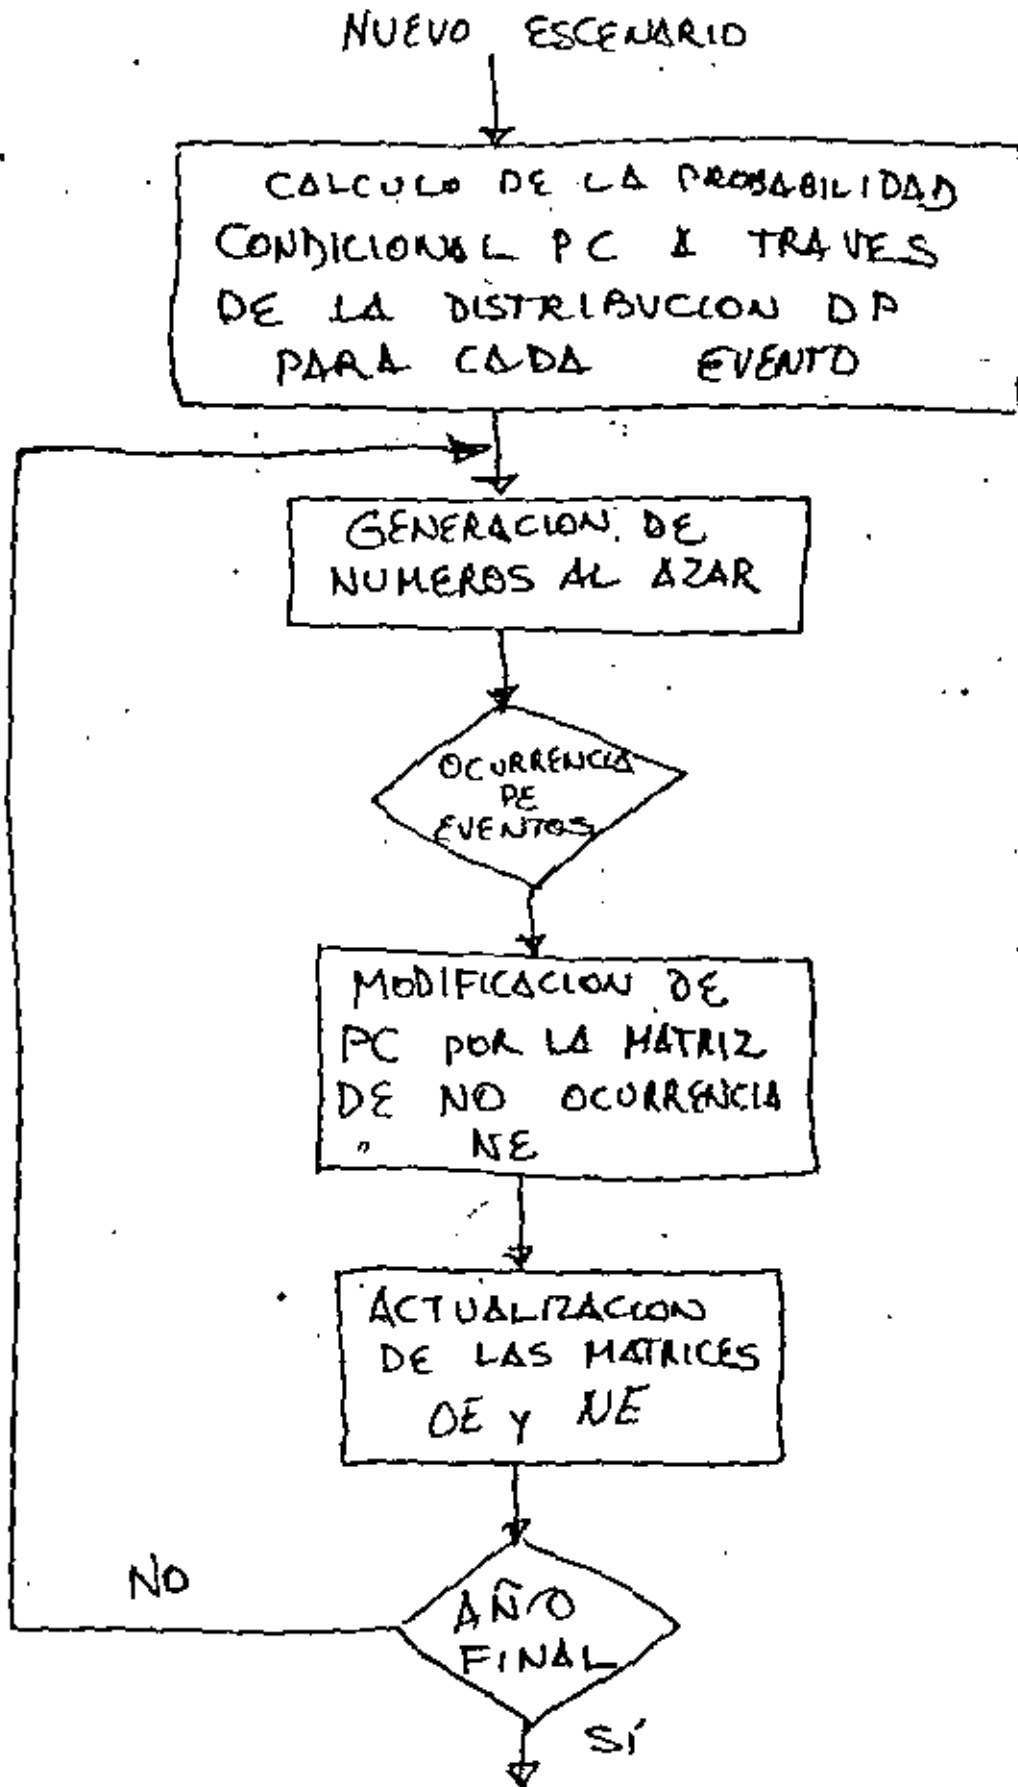 NUEVO ESCENARIO
CALCULO DE LA PROBABILIDAD
CONDICIONAL PC A TRAVES
DE LA DISTRIBUCION DP
PARA CADA EVENTO
GENERACION DE
NUMEROS AL AZAR
OCURRENCIA
DE
EVENTOS
MODIFICACION DE
PC POR LA MATRIZ
DE NO OCURRENCIA
NE
ACTUALIZACION
DE LAS MATRICES
OE y NE
NO
AÑO
FINAL
SÍ